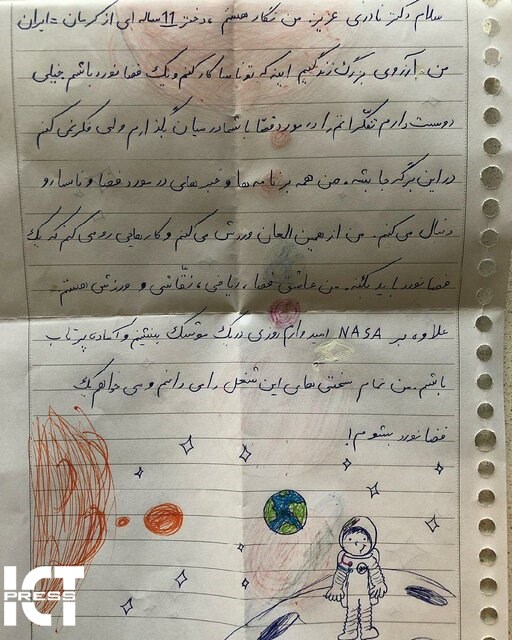 سلام دکتر نادری عزیز. من نگار هستم، دختر 11 ساله ای از کرمان - ایران
من آرزوی بزرگ زندگیم اینه که تو ناسا کار کنم و یک فضا نورد باشم خیلی
دوست دارم تفکّراتم را در مورد فضا با شما در میان بگذارم ولی فکر نمی کنم
در این برگه جا بشه. من همه برنامه ها و خبر های در مورد فضا و ناسا رو
دنبال می کنم. من از همین الان ورزش می کنم و کارهایی رو می کنم که یک
فضا نورد باید بکنه. من عاشق فضا، ریاضی، نقّاشی و ورزش هستم
علاوه بر NASA امیدوارم روزی در یک موشک بشینم و آماده پرتاب
باشم. من تمام سختی های این شغل را می دانم و می خواهم یک
فضا نورد بشوم!
ICT
PRESS